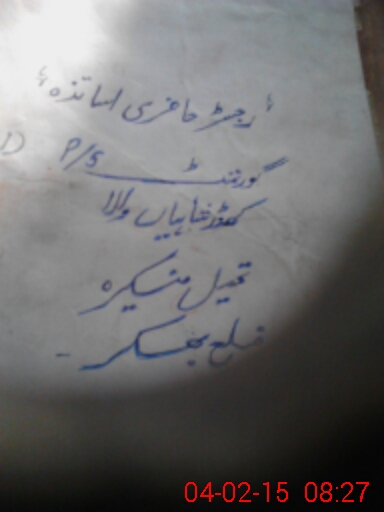 "رجسٹر حاضری اساتذہ"
گورنمنٹ P/S
والا
تحصیل منکیرہ
ضلع بھکر-
04-02-15 08:27